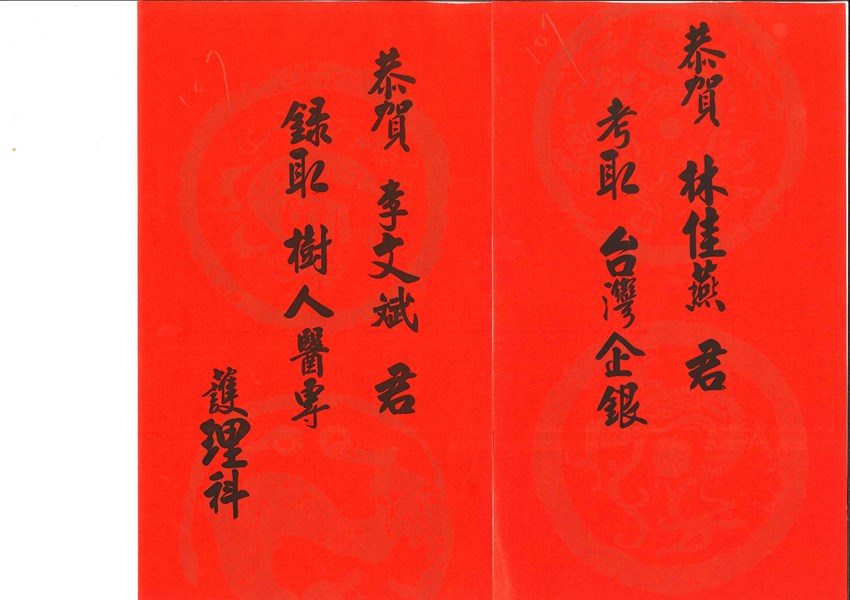 恭賀 林佳燕 君
考取 台灣企銀
107
恭賀 李文斌 君
錄取 樹人醫專
護理科
107